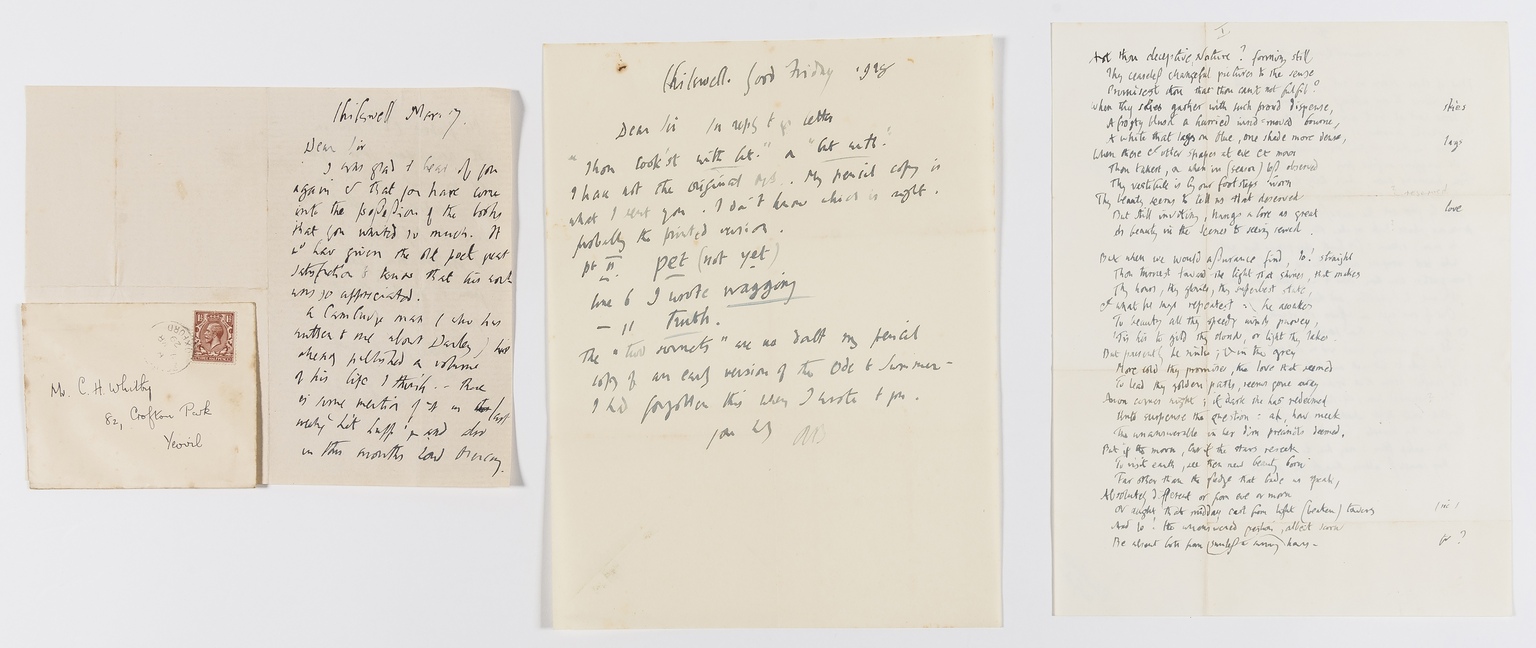 Chilswell Mar. 17.
Dear Sir
I was glad to hear of you
again & that you have come
into the possession of the books
that you wanted so much. It
wd have given the old poet great
satisfaction to know that his work
was so appreciated.
A Cambridge man (who has
written to me about Darley) has
already published a volume
of his life I think -- There
is some mention of it in the last
weekly Lit Supp and also
in this months Lond Mercury.
Mr. C. H. Whitby
82, Crofton Park
Yeovil
Chilswell. Good Friday 1928
Dear Sir In reply to yr letter
"Thou look'st with let." or "let with".
I have not the original MS. My pencil copy is
what I sent you. I don't know which is right.
probably the printed version.
pt II. pet (not yet)
line 6 I wrote wagging
— 11 truth.
The "two sonnets" are no doubt my pencil
copy of an early version of the Ode to Summer -
I had forgotten this when I wrote to you.
I
Art thou deceptive, Nature? forming still
Thy ceaseless changeful pictures to the sense
Promisest thou that thou canst not fulfil?
When thy skies gather with such proud dispense, skies
A frosty blush a hurried wind-moved bourne,
A white that lags on blue, one shade more dense, lags
When these & other shapes at eve & morn
Thou takest, or when in (season) left observed
Thy vestibule is by our footsteps worn
Thy beauty seems to tell us that deserved
But still invoking, hangs a love as great love
As beauty in the seemer to seeing served.
But when we would assurance find, lo! straight
Thou movest toward the light that shines, that makes
Thy hours, thy glories, thy superbest state,
Of what he says repentest he awakes
To beauty all thy speedy winds purvey,
'Tis his to gild thy clouds, or light thy lakes.
But presently he sinks; & in the grey
More cold thy promises, the love that seemed
To lead thy golden paths, seems gone away
Anon comes night; if dark she has redeemed
Until suspense the question: ah, how meek
The unanswerable in her dim precincts deemed.
But if the moon, but if the stars reseek
To visit earth, see then new beauty born
Far other than the pledge that bade us speak,
Absolutely different or from eve or morn
Or aught that midday cast from light (broken) towers
And lo! the unanswered passion, albeit sworn
Be absent both from smiles & sunny hours - or?